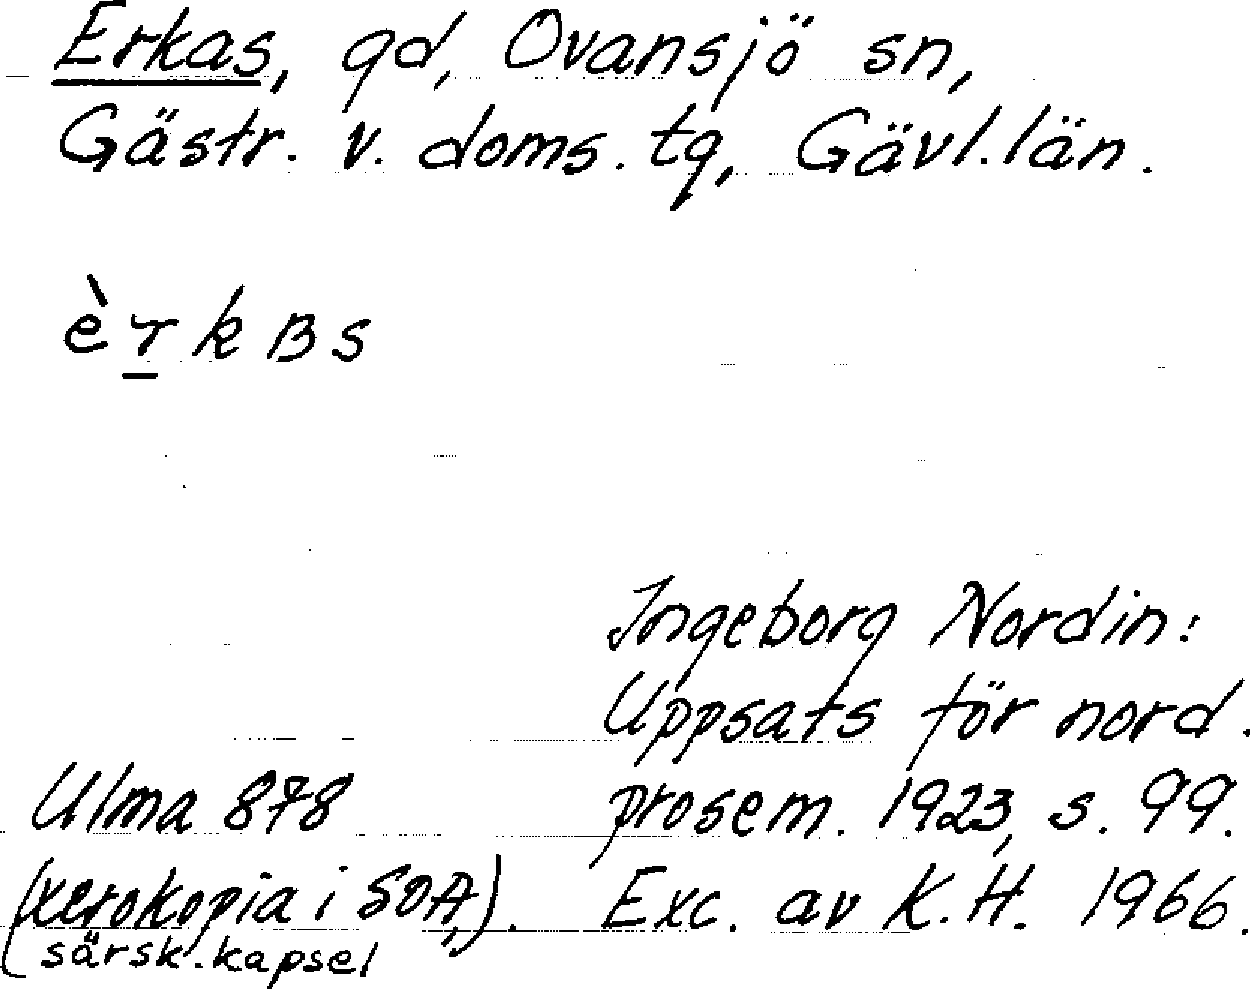 Erkas, gd, Ovansjö sn,
Gästr. v. doms. tg, Gävl. län.
èrkBs
Ingeborg Nordin:
Uppsats för nord.
prosem. 1923, s. 99.
Exc. av K.H. 1966.
Ulma 878
(xerokopia i SOA,
särsk. kapsel).